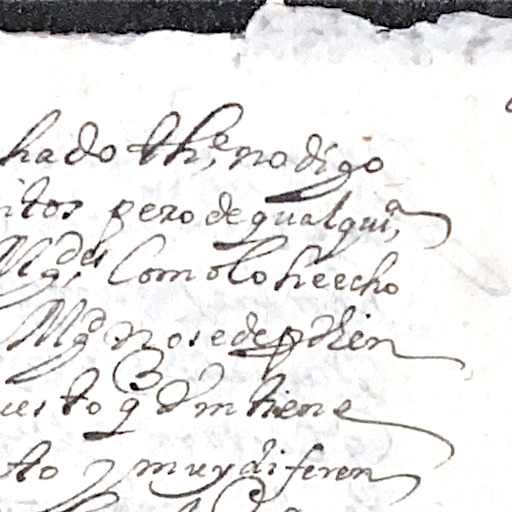 hado thᵉ, no digo
itos pero de qualquiᵃ,
Mgᵈᵉˢ, Como lo he echo
Mgᵈ no se de
uesto q Dⁿ tiene
to y muy diferen